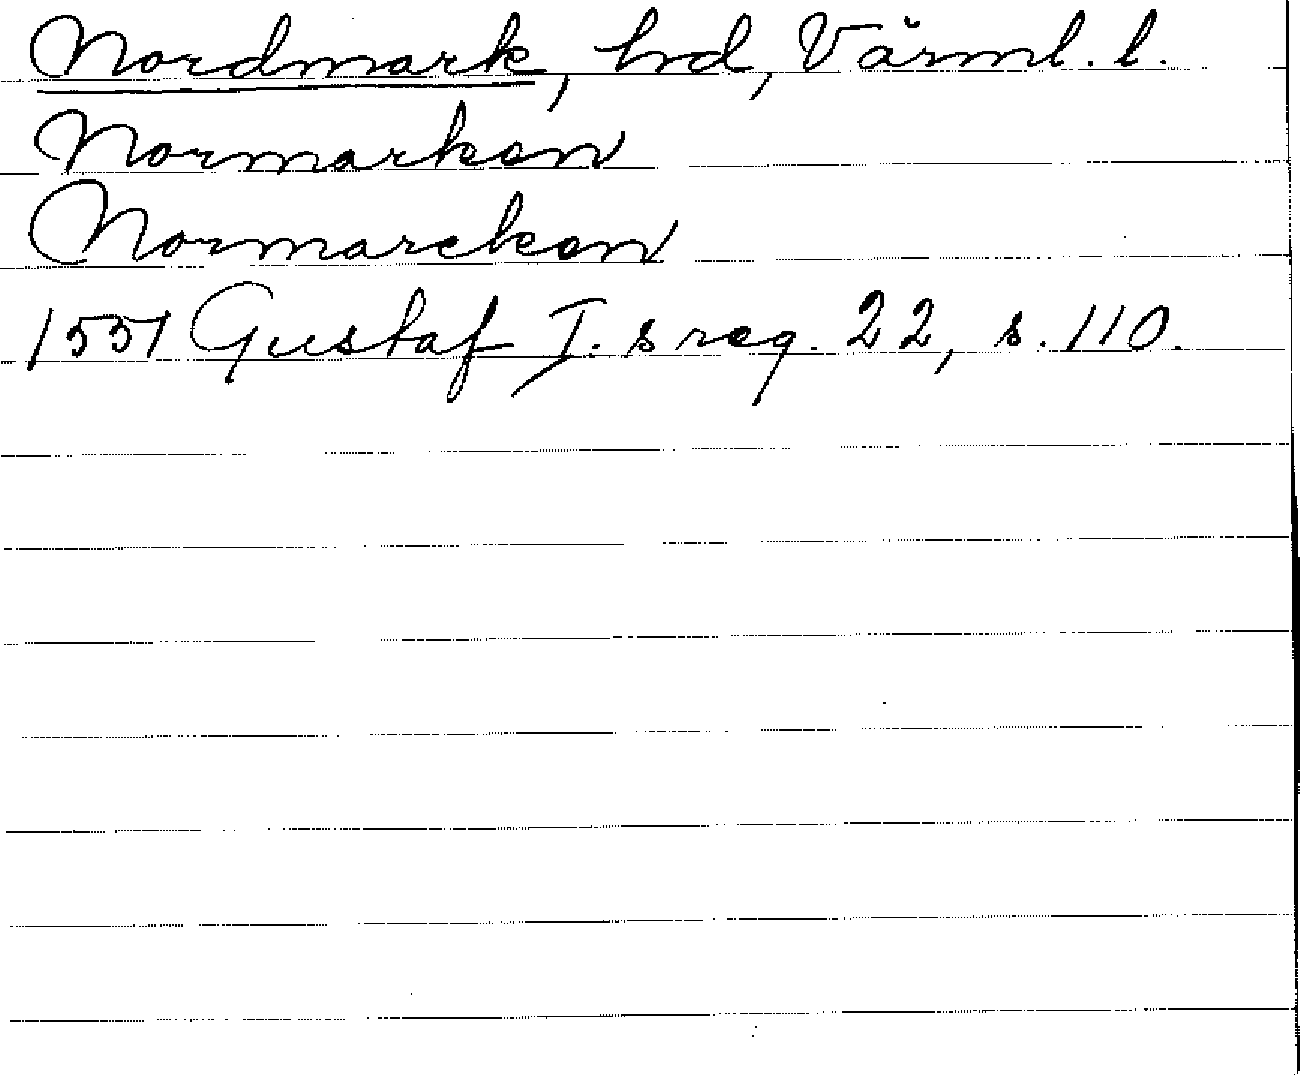 Nordmark, hd, Värml. l.
Normarken
Normarcken
1551 Gustaf I:s reg. 22, s. 110.